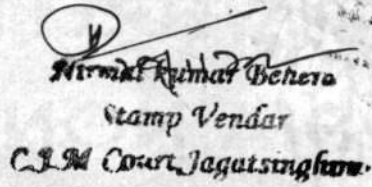 Nirmal Kumar Behera
Stamp Vendar
C.J.M Court, Jagatsinghpur.